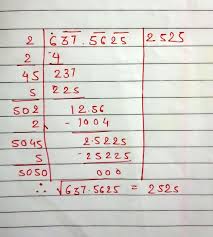 2 637.5625 2525
2 4
45 237
5 225
502 12.56
2 -1004
5045 2.5225
5 -25225
5050 000
∴ √637.5625 = 2525